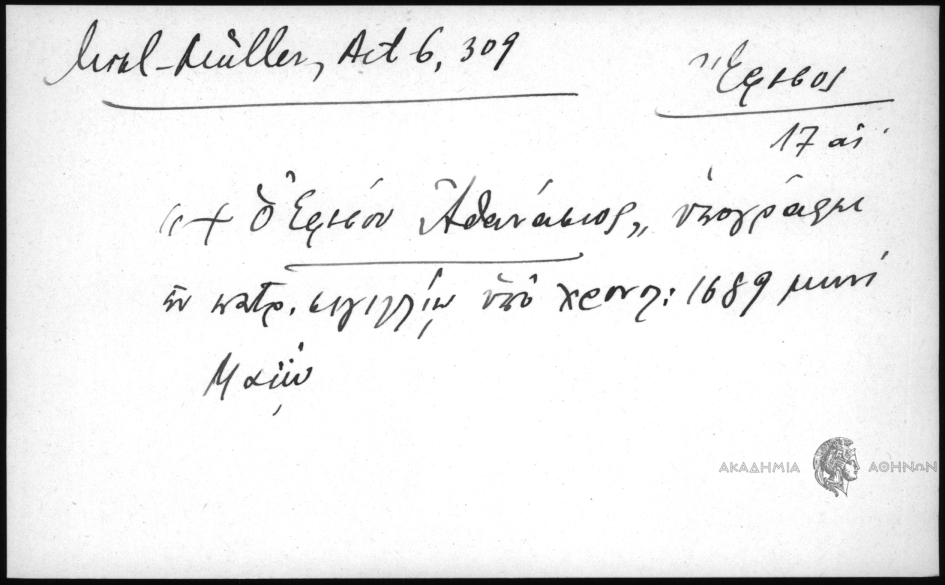 Mikl-Müller, Act 6, 309
Ἔφεσος
17 αἰ
«+ Ὁ Ἐφέσου Ἀθανάσιος», ὑπογράφει
ἐν πατρ. σιγιλλίῳ ὑπὸ χρονολ: 1689 μηνὶ
Μαΐῳ
ΑΚΑΔΗΜΙΑ ΑΘΗΝΩΝ